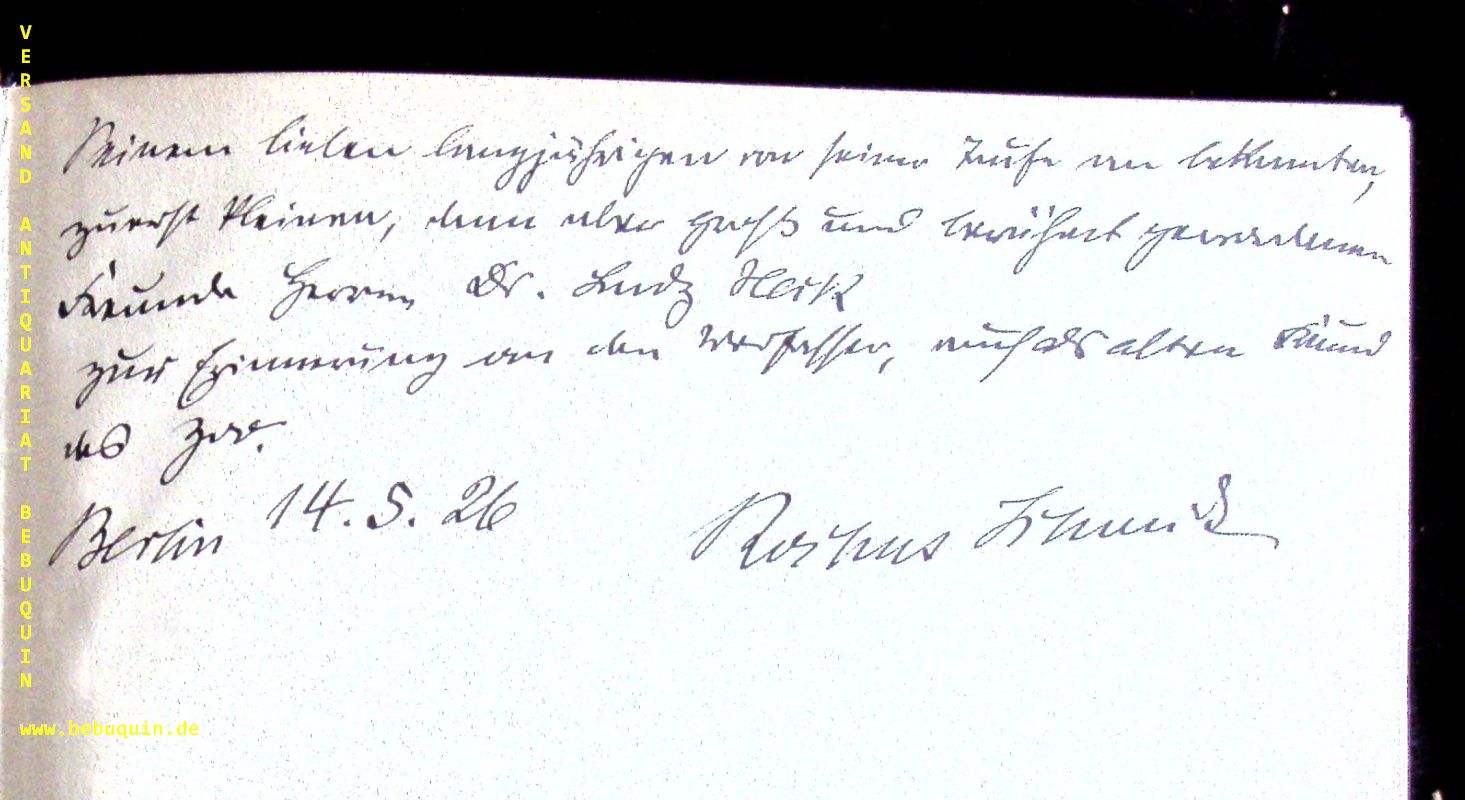 VERSAND ANTIQUARIAT BEBUQUIN
Seinem lieben langjährigen von seiner Taufe an bekannten,
zuerst kleinen, dann aber groß und berühmt gewordenen
Freunde Herrn Dr. Lutz Heck
zur Erinnerung an den Verfasser, auch als alten Freund
des Zoo.
Berlin 14. 5. 26
Rochus Schmidt
www.bebuquin.de